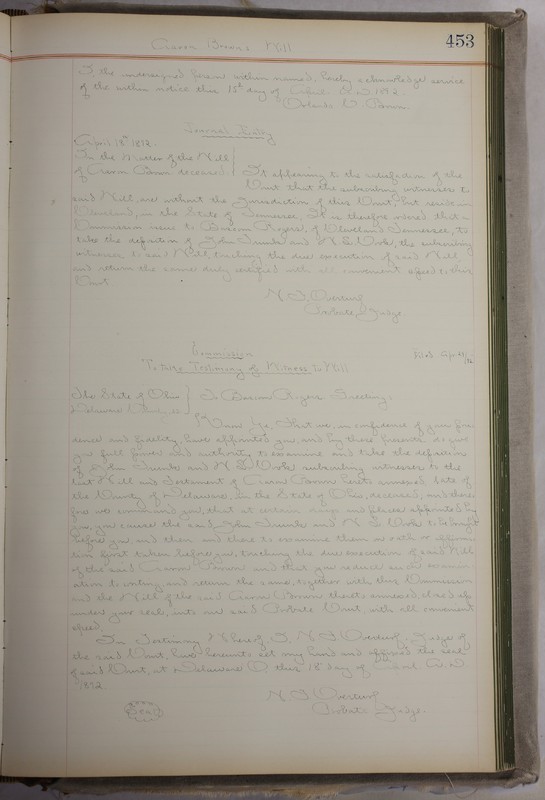 Brown's Will
453
I the undersigned person within named, hereby acknowledge service
of the within notice this 15th day of April A.D. 1892.
Orlando Brown.
Journal Entry
April 18th 1892.
In the Matter of the Will
of Brown deceased.
It appearing to the satisfaction of the
Court that the subscribing witnesses to
said Will, are without the jurisdiction of this Court, but reside in
Cleveland, in the State of Tennessee, It is therefore ordered that a
Commission issue to Bascom Rogers, of Cleveland Tennessee, to
take the deposition of John and the subscribing
witnesses to said Will, touching the due execution of said Will
and return the same duly certified with all convenient speed to this
Court.
N. F. Overturf
Probate Judge
Commission
To take Testimony of Witness to Will
The State of Ohio
Delaware
To Bascom Rogers Greeting:
Know Ye, That we, in confidence of your
dence and fidelity, have appointed you, and by these presents do give
you full power and authority to examine and take the deposition
of John and subscribing witnesses to the
last Will and Testament of Brown hereto annexed late of
the County of Delaware, in the State of Ohio, deceased; and there
fore we command you, that at certain days and places appointed by
you, you cause the said, John and to be brought
before you, and then and there to examine them on oath or affirma
tion first taken before you, touching the due execution of said Will
of the said Brown and that you reduce such examin
ation to writing, and return the same, together with this Commission
and the Will of the said Brown thereto annexed closed up
under your seal, into our said Probate Court, with all convenient
speed.
In Testimony Whereof I, N. F. Overturf, Judge of
the said Court, have hereunto set my hand and affixed the seal
of said Court, at Delaware O. this 18th day of April A.D.
1892.
N. F. Overturf
Probate Judge.
Seal